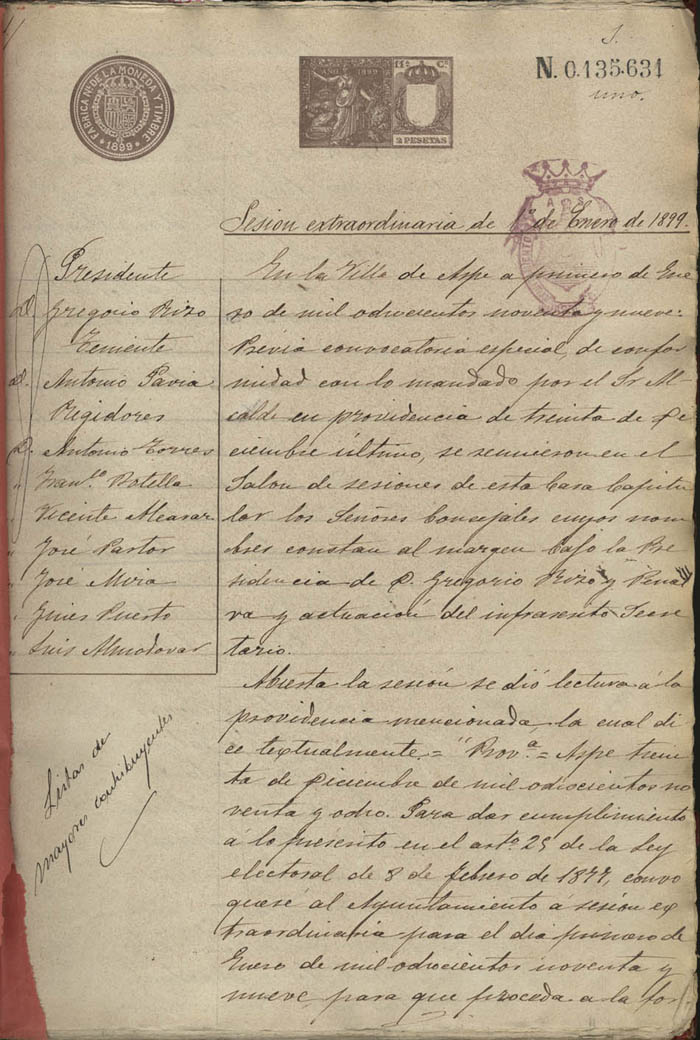 FABRICA Nal DE LA MONEDA Y TIMBRE
* 1899 *
AÑO 1899
11ª Cª
2 PESETAS
1.
N. 0.135.631
uno.
A S
Sesion extraordinaria de 1º de Enero de 1899.
Presidente
D. Gregorio Rizo
Teniente
D. Antonio Pavia
Regidores
D. Antonio Torres
" Franco Botella
" Vicente Alcaraz
" José Pastor
" José Mira
" Gines Puerto
" Luis Almodovar
Listas de
mayores contribuyentes
En la Villa de Aspe a primero de Ene
ro de mil odrocientos noventa y nueve:
Prévia convocatoria especial, de confor
midad con lo mandado por el Sr Al-
calde en providencia de treinta de Di
ciembre último, se reunieron en el
Salon de sesiones de esta Casa Capitu
lar los Señores Concejales cuyos nom
bres constan al margen bajo la Pre
sidencia de D. Gregorio Rizo y Penal
va y actuación del infrascrito Secre
tario.
Abierta la sesión se dió lectura á la
providencia mencionada, la cual di
ce textualmente = "Prov.ª = Aspe trein
ta de Diciembre de mil odrocientos no
venta y odro. Para dar cumplimiento
á lo préscrito en el artº 25 de la Ley
electoral de 8 de Febrero de 1877, convo
quese al Ayuntamiento á sesión ex
traordinaria para el dia primero de
Enero de mil odrocientos noventa y
nueve, para que proceda a la for